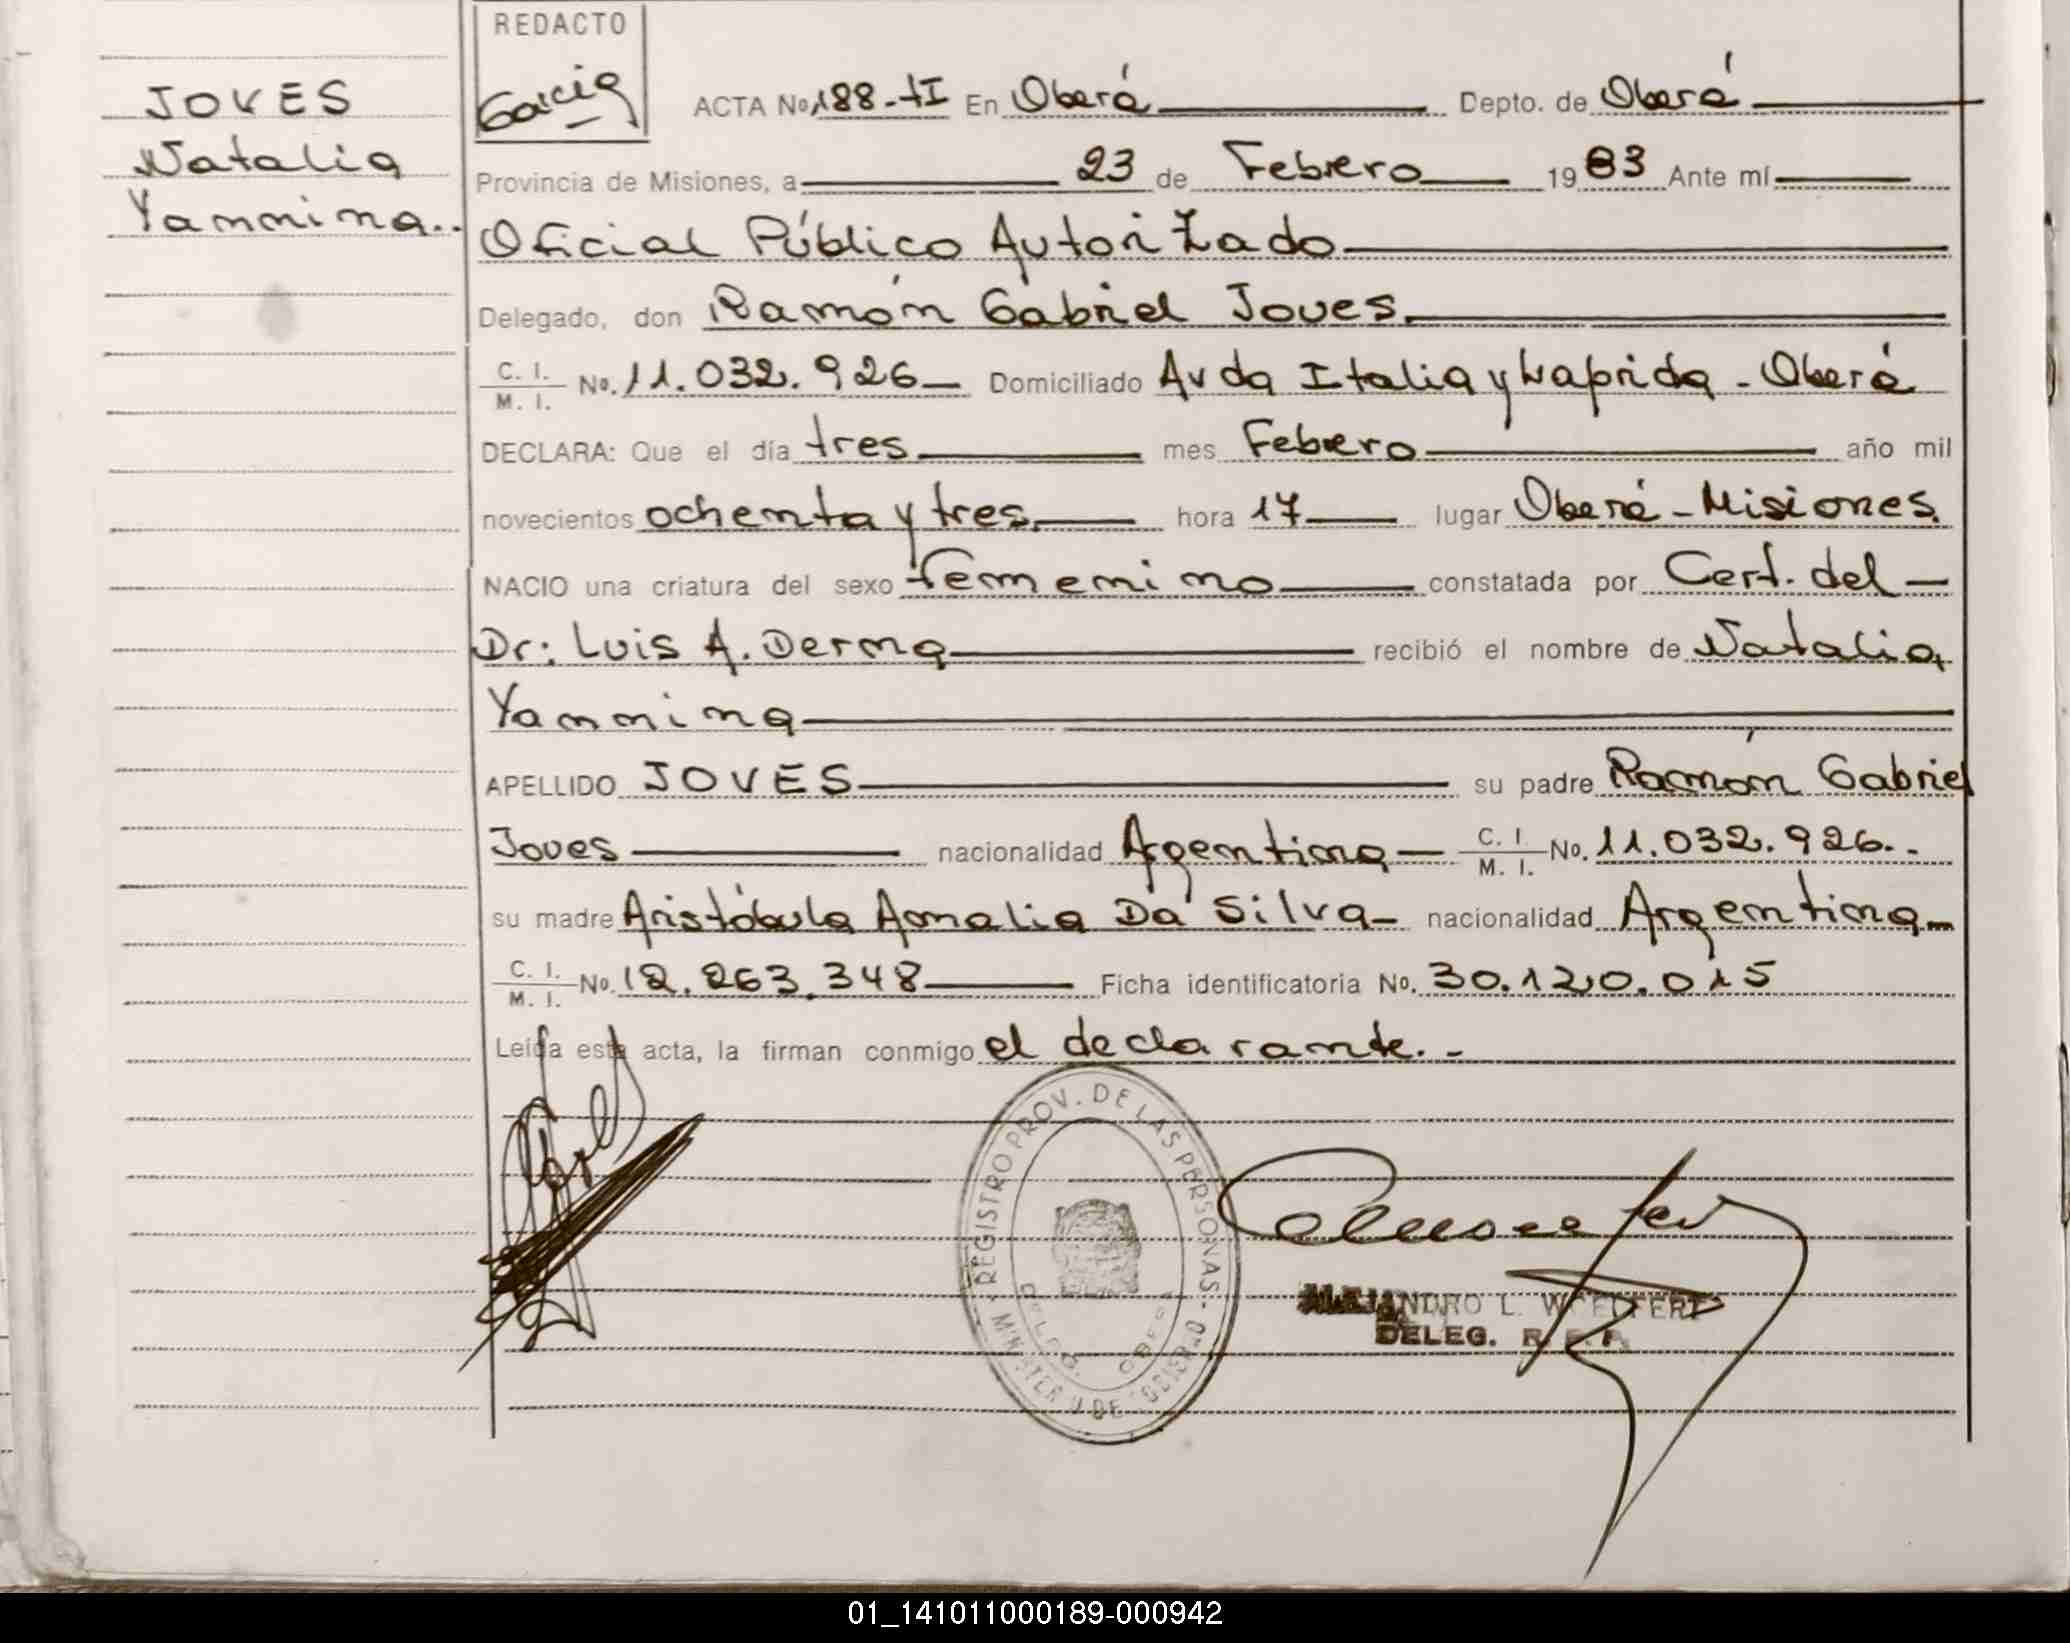 REDACTO
García
JOVES
Natalia
Yannina..
ACTA No 188-tI En Oberá Depto. de Oberá
Provincia de Misiones, a 23 de Febrero 1983 Ante mí
Oficial Público Autorizado
Delegado, don Ramón Gabriel Joves.
C. I. / M. I. No. 11.032.926 Domiciliado Avda Italia y Laprida - Oberá
DECLARA: Que el día tres mes Febrero año mil
novecientos ochenta y tres. hora 17 lugar Oberá - Misiones.
NACIO una criatura del sexo femenino constatada por Cert. del
Dr: Luis A. Derna recibió el nombre de Natalia
Yannina
APELLIDO JOVES su padre Ramón Gabriel
Joves nacionalidad Argentina C. I. / M. I. No. 11.032.926..
su madre Aristóbula Amalia Da Silva nacionalidad Argentina
C. I. / M. I. No. 12.263.348 Ficha identificatoria No. 30.120.015
Leída esta acta, la firman conmigo el declarante.-
REGISTRO PROV. DE LAS PERSONAS
MINISTERIO DE GOBIERNO
ALEJANDRO L.
DELEG. R.
01_141011000189-000942